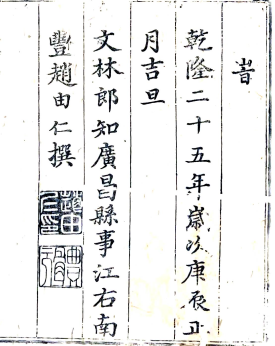 旹
乾隆二十五年歲次庚辰正
月吉旦
文林郎知廣昌縣事江右南
豐趙由仁撰
趙由仁印